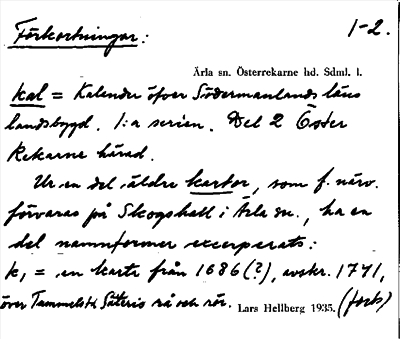 Förkortningar: 1-2.
Ärla sn. Österrekarne hd. Sdml. l.
kal = Kalender öfver Södermanlands läns
landsbygd. 1:a serien. Del 2 Öster
Rekarne härad.
Ur en del äldre kartor, som f. närv.
förvaras på Skogshall i Ärla sn., ha en
del namnformer excerperats:
k1 = en karta från 1686 (?), avskr. 1771,
över Tammelsth Säteris rå och rör.
Lars Hellberg 1935. (forts)